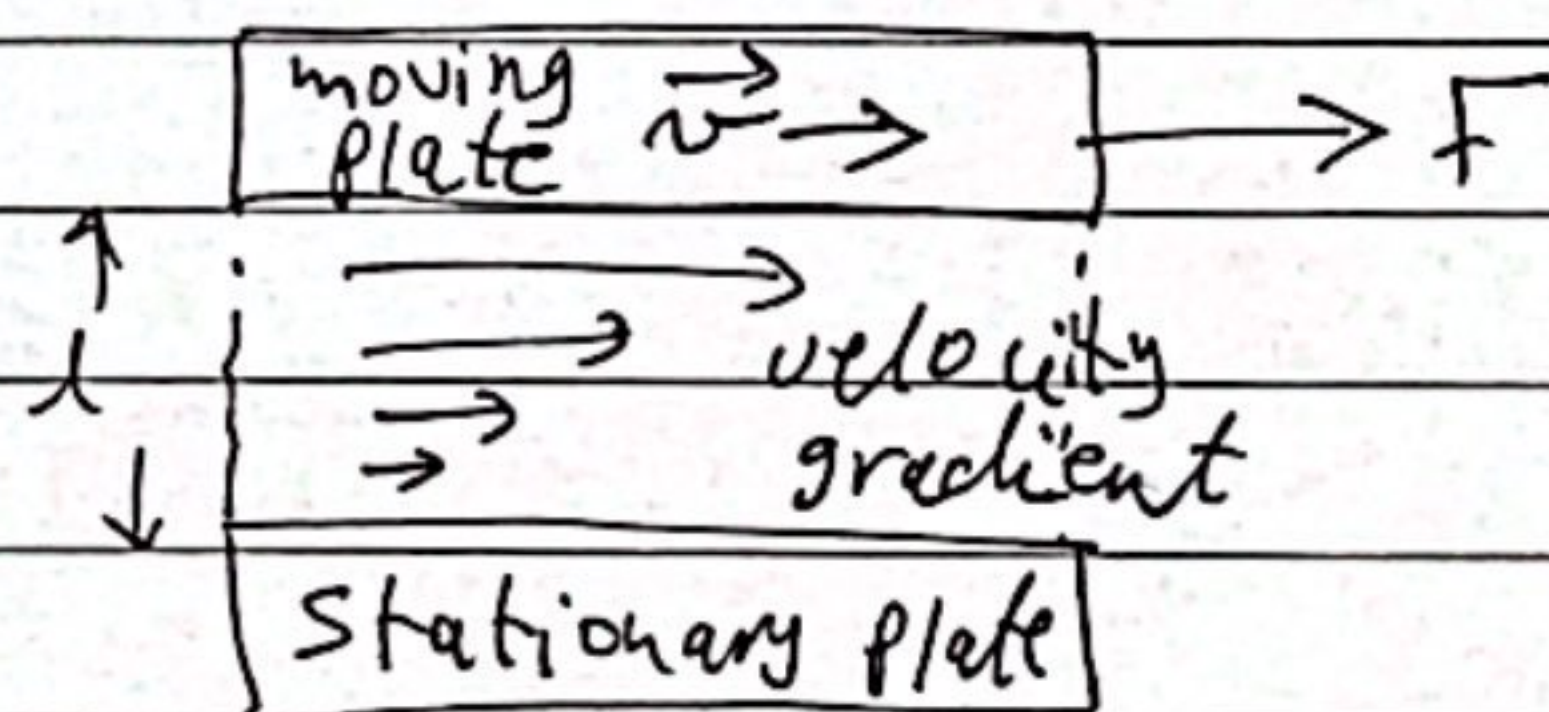 moving
plate v F
l
velocity
gradient
Stationary plate